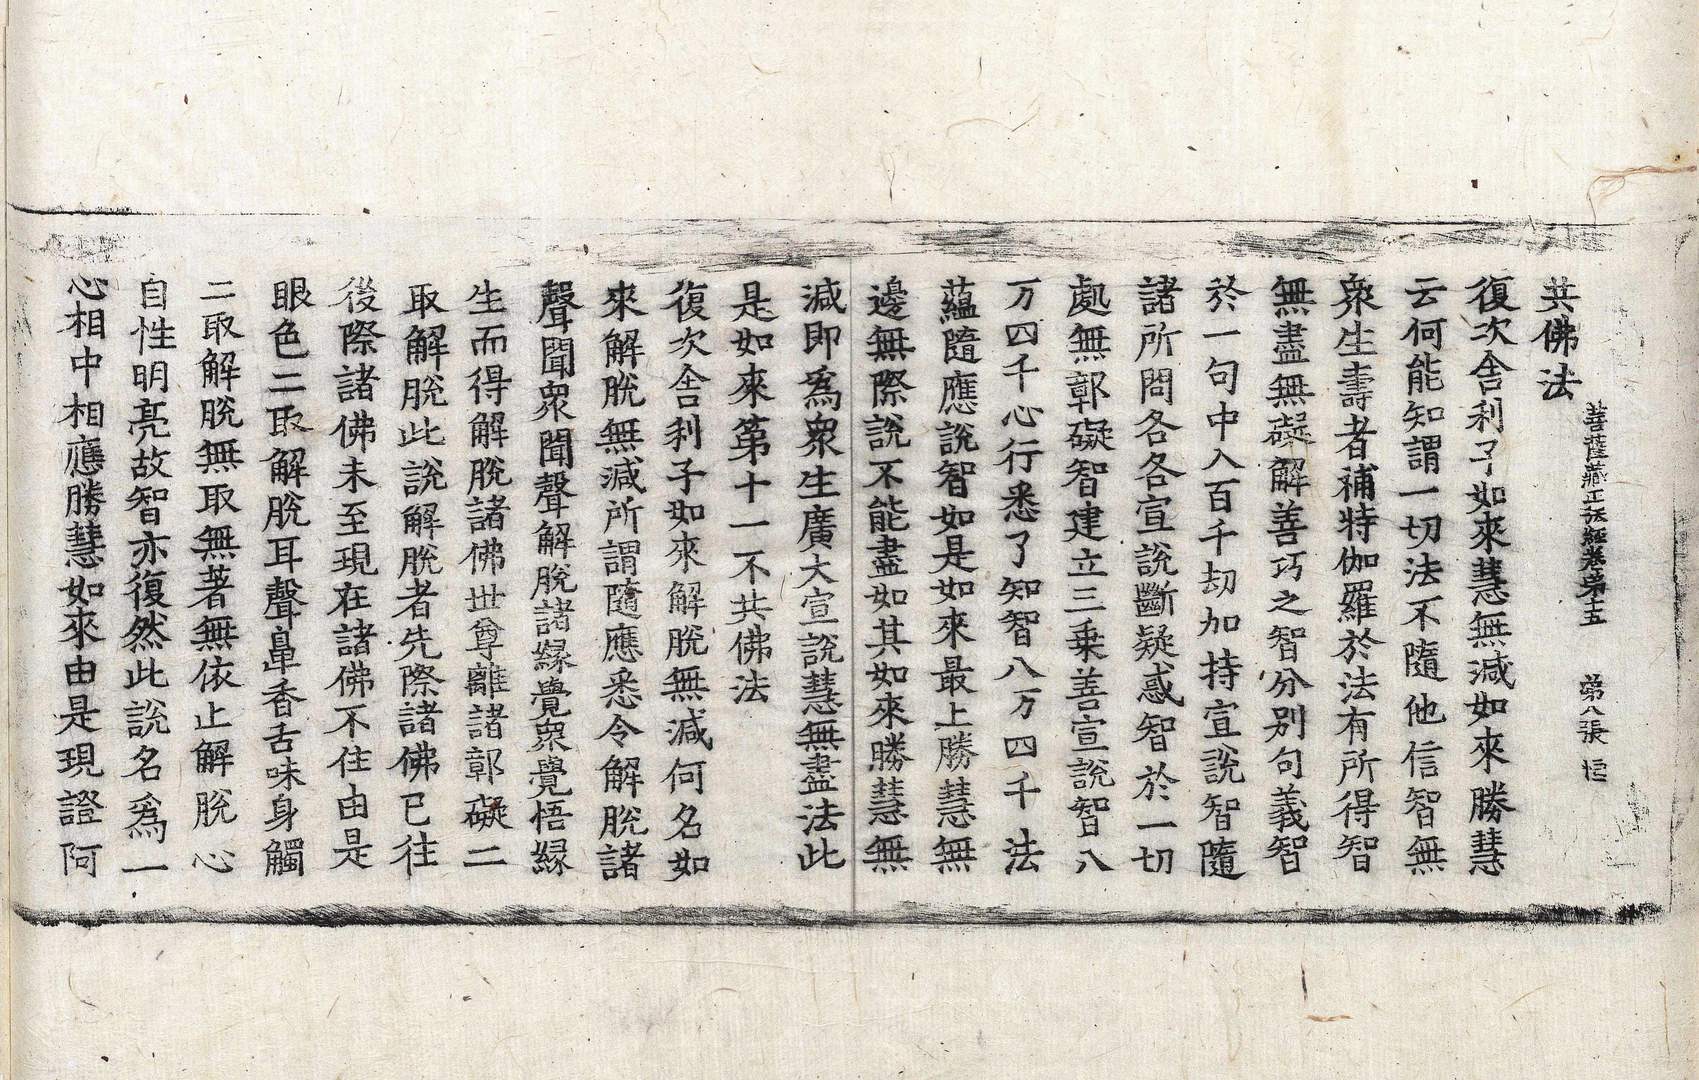 菩薩藏正法經卷第十五　第八張　恒
共佛法
復次舍利子如來慧無減如來勝慧
云何能知謂一切法不隨他信智無
衆生壽者補特伽羅於法有所得智
無盡無礙解善巧之智分別句義智
於一句中入百千刧加持宣說智隨
諸所問各各宣說斷疑惑智於一切
處無鄣礙智建立三乗善宣說智八
万四千心行悉了知智八万四千法
蘊隨應說智如是如來最上勝慧無
邊無際說不能盡如其如來勝慧無
減即爲衆生廣大宣說慧無盡法此
是如來第十一不共佛法
復次舍利子如來解脫無減何名如
來解脫無減所謂隨應悉令解脫諸
聲聞衆聞聲解脫諸緣覺衆覺悟緣
生而得解脫諸佛世尊離諸鄣礙二
取解脫此說解脫者先際諸佛已往
後際諸佛未至現在諸佛不住由是
眼色二取解脫耳聲鼻香舌味身觸
二取解脫無取無著無依止解脫心
自性明亮故智亦復然此說名爲一
心相中相應勝慧如來由是現證阿